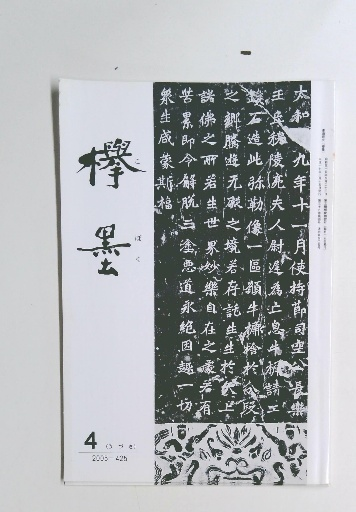 太和 九年十一月使持節司空公長樂
王丘穆陵亮夫人尉遲為亡息牛橛請工
鏤石造此弥勒像一區願牛橛捨於分段
之鄉騰遊无礙之境若存託生生於天上
諸佛之所若生世界妙樂自在之處若有
苦累即令解脫三塗惡道永絕因趣一切
衆生咸蒙斯福
欅墨
ぼく
4
2005